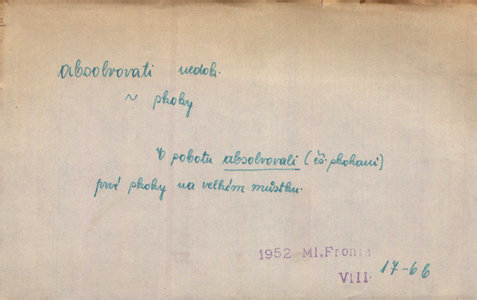 absolvovati nedok.
~ skoky
V sobotu absolvovali (čs. skokani)
prvé skoky na velkém můstku.
1952 Ml. Fronta
VIII. 17-66